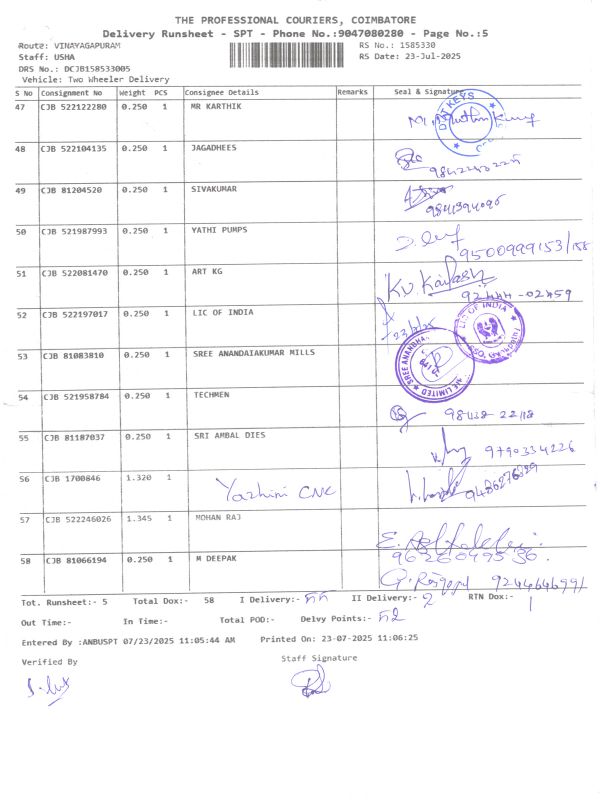 THE PROFESSIONAL COURIERS, COIMBATORE
Delivery Runsheet - SPT - Phone No.:9047080280 - Page No.:5
Route: VINAYAGAPURAM RS No.: 1585330
Staff: USHA RS Date: 23-Jul-2025
DRS No.: DCJB158533005
Vehicle: Two Wheeler Delivery
S No Consignment No Weight PCS Consignee Details Remarks Seal & Signature
47 CJB 522122280 0.250 1 MR KARTHIK
KEYS
48 CJB 522104135 0.250 1 JAGADHEES
49 CJB 81204520 0.250 1 SIVAKUMAR
50 CJB 521987993 0.250 1 YATHI PUMPS
9500999153/158
51 CJB 522081470 0.250 1 ART KG
92444-02459
52 CJB 522197017 0.250 1 LIC OF INDIA
LIC OF INDIA
53 CJB 81083810 0.250 1 SREE ANANDAIAKUMAR MILLS
54 CJB 521958784 0.250 1 TECHMEN
98438 22118
55 CJB 81187037 0.250 1 SRI AMBAL DIES
9790334226
56 CJB 1700846 1.320 1 Yazhini CNC
9486276329
57 CJB 522246026 1.345 1 MOHAN RAJ
58 CJB 81066194 0.250 1 M DEEPAK
Tot. Runsheet:- 5 Total Dox:- 58 I Delivery:- II Delivery:- 2 RTN Dox:- 1
Out Time:- In Time:- Total POD:- Delvy Points:-
Entered By :ANBUSPT 07/23/2025 11:05:44 AM Printed On: 23-07-2025 11:06:25
Verified By Staff Signature